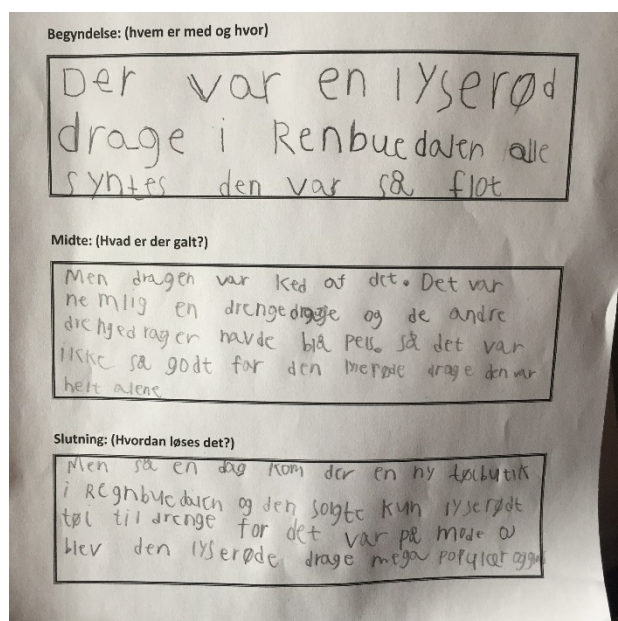 Begyndelse: (hvem er med og hvor)
Der var en lyserød
drage i Renbuedalen alle
syntes den var så flot
Midte: (Hvad er der galt?)
Men dragen var ked af det. Det var
nemlig en drengedrage og de andre
drengedrager havde blå pels. så det var
ikke så godt for den lyserøde drage den var
helt alene
Slutning: (Hvordan løses det?)
Men så en dag kom der en ny tøjbutik
i Regnbuedalen og den solgte kun lyserødt
tøj til drenge for det var på mode
blev den lyserøde drage mega populær